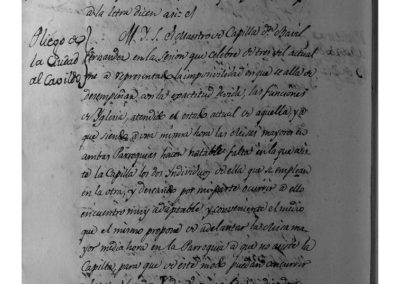 a la letra dicen asi
Pliego de
la Ciudad
al Cavildo
M. Y. S. el Maestro de Capilla Dn
en la Sesion que celebre de tres del actual
me a representado la imposivilidad en que se alla de
desempeñar con la exactitud devida, las funciones
de Yglesia, atendido el estado actual de aquella, y a
que siendo a una misma hora las Misas mayores en
ambas Parroquias hacen notable falta en la que asis-
te la Capilla los dos Individuos de ella que se emplean
en la otra, y deseando por mi parte ocurrir a ello
encuentro muy adaptable y conveniente el medio
que el mismo propone de adelantar la Misa ma-
yor media hora en la Parroquia a que no asiste la
Capilla, para que de este modo puedan concurrir